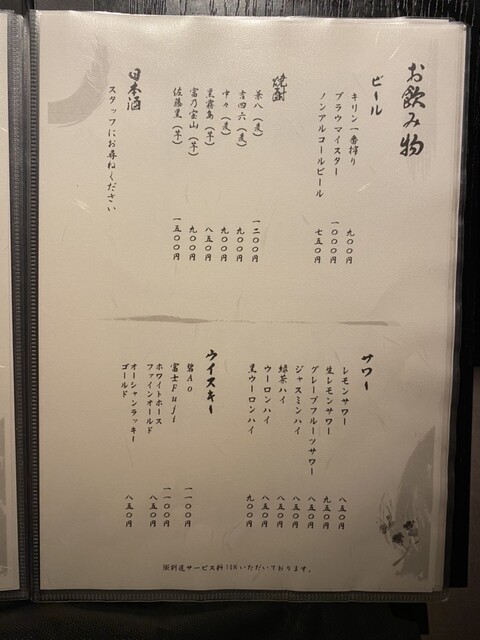 お飲み物
ビール
キリン一番搾り 九〇〇円
ブラウマイスター 一〇〇〇円
ノンアルコールビール 七五〇円
焼酎
兼八(麦) 一二〇〇円
吉四六(麦) 九〇〇円
中々(麦) 九〇〇円
黒霧島(芋) 八五〇円
富乃宝山(芋) 九〇〇円
佐藤黒(芋) 一五〇〇円
日本酒
スタッフにお尋ねください
サワー
レモンサワー 八五〇円
生レモンサワー 九五〇円
グレープフルーツサワー 八五〇円
ジャスミンハイ 八五〇円
緑茶ハイ 八五〇円
ウーロンハイ 八五〇円
黒ウーロンハイ 九〇〇円
ウイスキー
碧Ao 一一〇〇円
富士Fuji 一一〇〇円
ホワイトホース
ファインオールド 八五〇円
オーシャンラッキー
ゴールド 八五〇円
※別途サービス料10%いただいております。